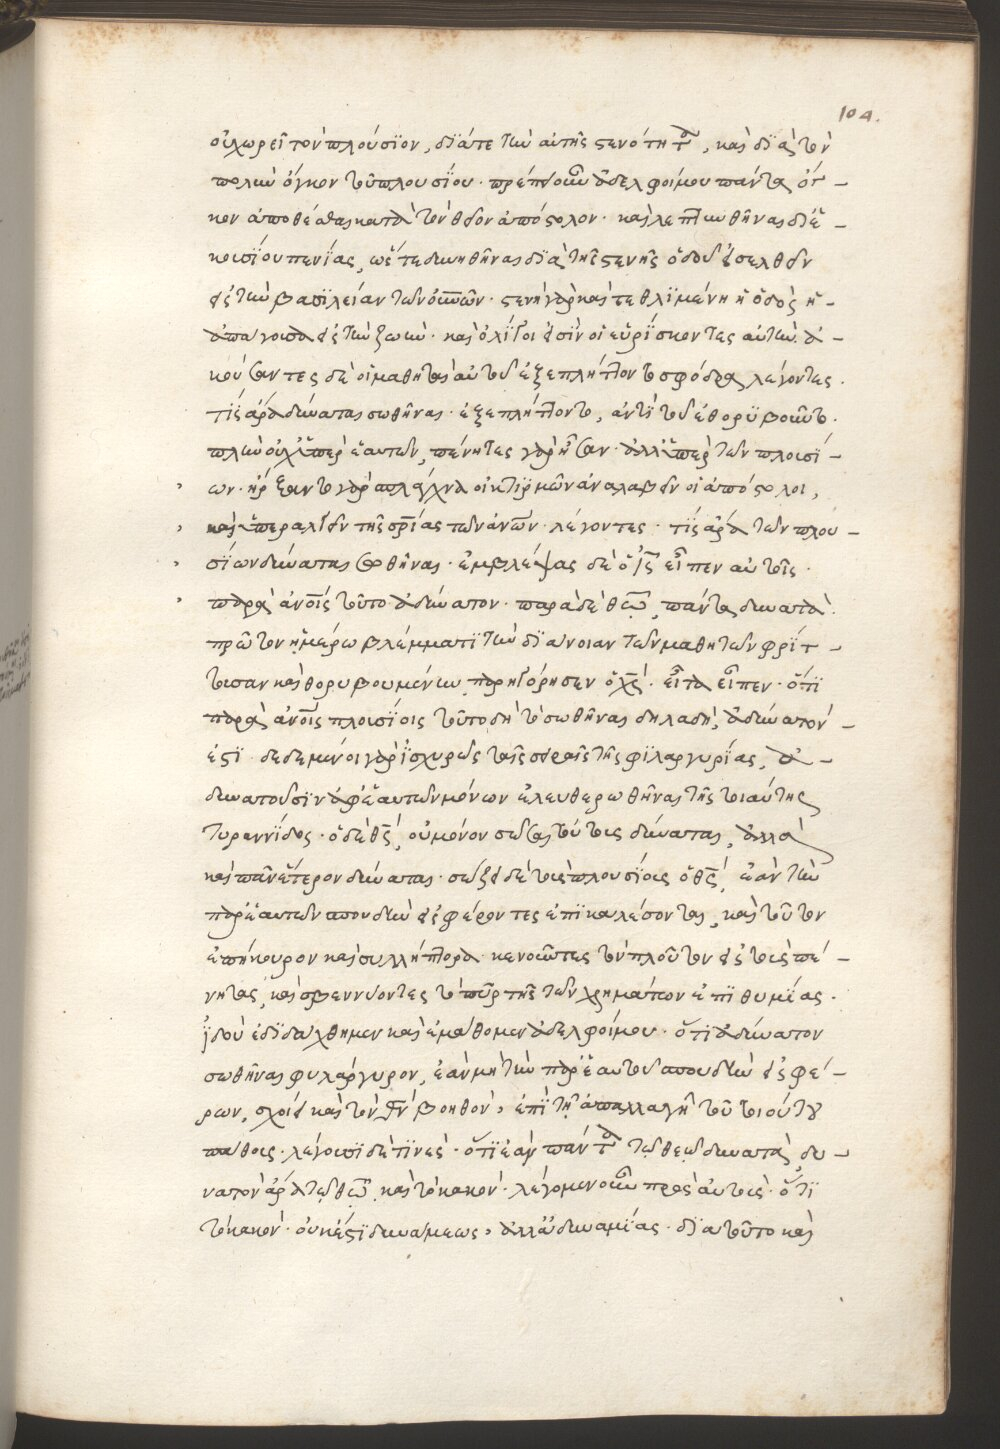 104.
οὐ χωρεῖ τὸν πλούσϊον, δϊά τε τὴν αὐτῆς στενότητα, καὶ δϊὰ τὸν
πολὺν ὄγκον τοῦ πλουσίου· πρέπει οὖν ἀδελφοίμου πάντα ὄγ-
κον ἀποθέσθαι κατὰ τὸν θεῖον ἀπόστολον· καὶ λεπτυνθῆναι δι' ἑ-
κουσΐου πενΐας, ὥστε δυνηθῆναι δϊὰ τῆς στενῆς ὁδοῦ εἰσελθεῖν
εἰς τὴν βασϊλείαν τῶν οὐνῶν· στενὴ γὰρ καὶ τεθλϊμένη ἡ ὁδὸς ἡ-
ἀπάγουσα εἰς τὴν ζωήν· καὶ ὀλίγοι εἰσὶν οἱ εὑρΐσκοντες αὐτήν. ἀ-
κούσαντες δὲ οἱ μαθηταὶ αὐτοῦ ἐξεπλήττοντο σφόδρα λέγοντες·
τΐς ἄρα δύναται σωθῆναι· ἐξεπλήττοντο, ἀντῒ τοῦ ἐθορϋβοῦντο·
πλὴν οὐχ ὑπὲρ ἑαυτῶν, πένητες γὰρ ἦσαν· ἀλλ' ὑπὲρ τῶν πλουσΐ-
ων· ἤρξαντο γὰρ σπλάγχνα οἰκτιρμῶν ἀναλαβεῖν οἱ ἀπόστολοι,
καὶ ὑπεραλγεῖν τῆς σρΐας τῶν ἀνων· λέγοντες· τΐς ἄρα τῶν πλου-
σίων δύναται σωθῆναι· ἐμβλέψας δὲ ὁ ις εἶπεν αὐτοῖς·
παρὰ ἀνοις τοῦτο ἀδύνατον· παρὰ δὲ θεῶ, πάντα δυνατά·
πρῶτον ἡμέρω βλέμματϊ τὴν δϊάνοιαν τῶν μαθητῶν φρίτ-
τουσαν καὶ θορυβουμένην παρηγόρησεν ὁ χς· εἶτα εἶπεν· ὅτϊ
παρὰ ἀνοις πλουσΐοις τοῦτο δὴ τὸ σωθῆναι δηλαδὴ, ἀδύνατόν-
ἐστϊ· δεδεμένοι γὰρ ἰσχυρῶς ταῖς σειραῖς τῆς φϊλαργυρΐας, ἀ-
δυνατοῦσϊν ἀφ' ἑαυτῶν μόνων ἐλευθερωθῆναι τῆς τοιαύτης
τυραννΐδος· ὁ δὲ θς, οὐ μόνον σῶσαι τούτους δύναται, ἀλλὰ
καὶ πᾶν ἕτερον δύναται· σώζει δὲ τοὺς πλουσΐους ὁ θς, ἐὰν τὴν
παρ' ἑαυτῶν σπουδὴν εἰσφέροντες ἐπϊκαλέσονται, καὶ τοῦτον
ἐπήκουρον καὶ συλλήπτορα· κενοῦντες τὸν πλοῦτον εἰς τοὺς πέ-
νητας, καὶ σβεννύοντες τὸ πῦρ τῆς τῶν χρημάτων ἐπϊθυμΐας·
ἰδοὺ ἐδϊδάχθημεν καὶ ἐμάθομεν ἀδελφοίμου· ὅτϊ ἀδύνατον
σωθῆναι φυλάργυρον, ἐὰν μὴ τὴν παρ' ἑαυτοῦ σπουδὴν εἰσφέ-
ρων, σχοίει καὶ τὸν θν βοηθὸν, ἐπῒ τῇ ἀπαλλαγῇ τοῦ τοιούτου
πάθους· λέγουσϊ δὲ τϊνὲς· ὅτϊ ἐὰν πάντα τῷ θεῷ δυνατὰ, δυ-
νατὸν ἄρα τῷ θεῶ, καὶ τὸ κακόν· λέγομεν οὖν πρὸς αὐτοὺς· ὅτϊ
τὸ κακὸν· οὐκ ἔστϊ δυνάμεως, ἀλλ' ἀδυναμΐας· δϊὰ τοῦτο καὶ